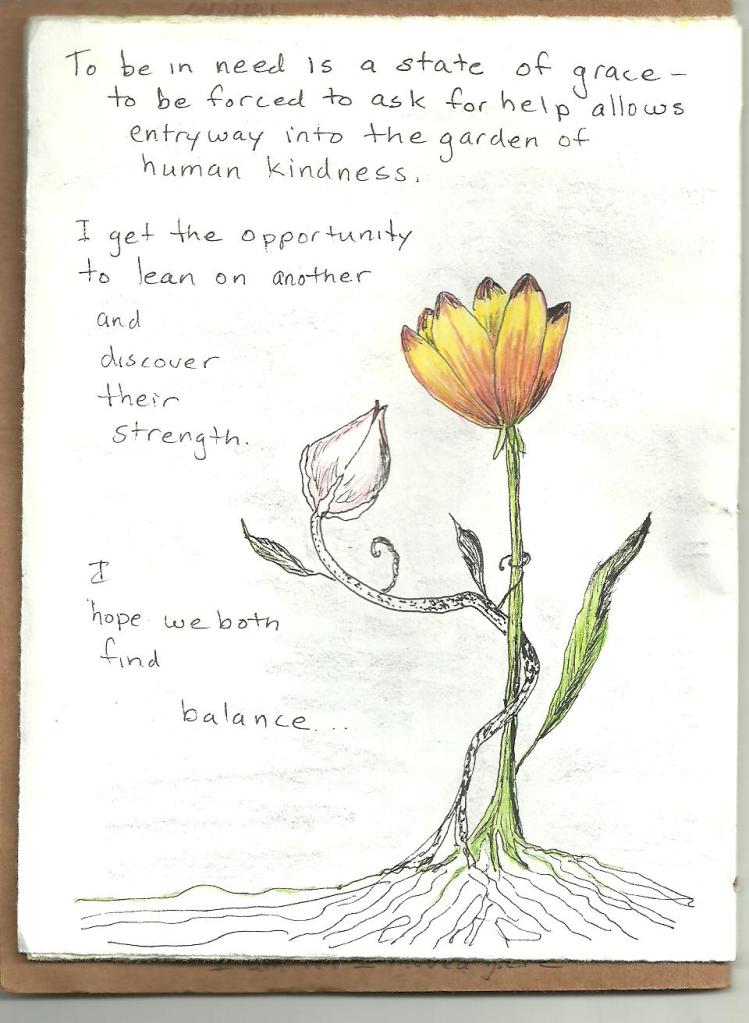 To be in need is a state of grace –
to be forced to ask for help allows
entryway into the garden of
human kindness.
I get the opportunity
to lean on another
and
discover
their
strength.
I
hope we both
find
balance...